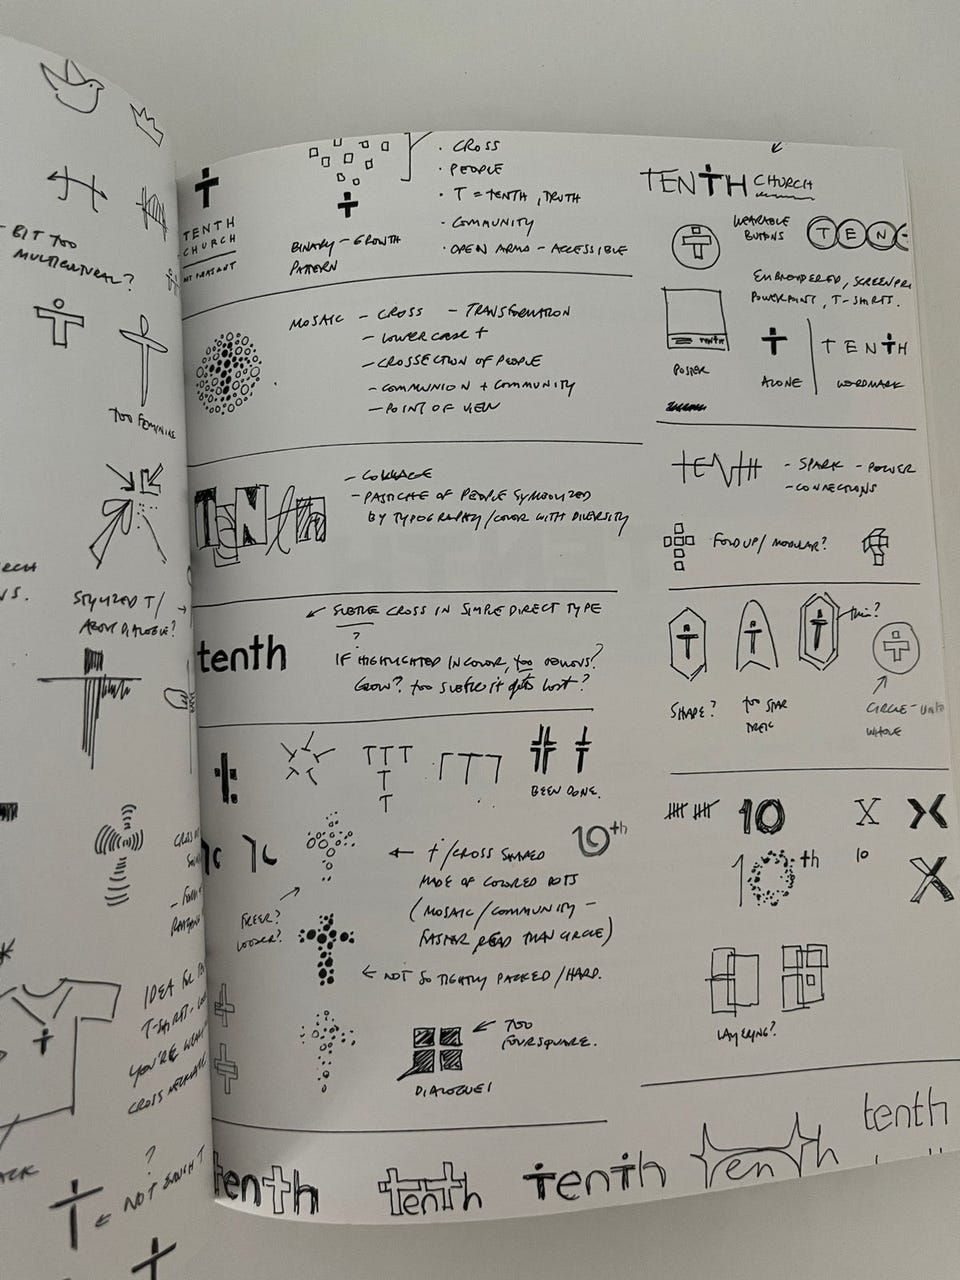 - BIT TOO
MULTICULTURAL?
TOO FEMININE
STYLIZED T/
ABOUT DIALOGUE?
IDEA FOR
T-SHIRT -
YOU'RE
CROSS NECKLACE
?
← NOT ENOUGH T
TENTH
CHURCH
MT PLEASANT
BINARY - GROWTH
PATTERN
· CROSS
· PEOPLE
· T = TENTH, TRUTH
· COMMUNITY
· OPEN ARMS - ACCESSIBLE
MOSAIC - CROSS - TRANSFORMATION
- LOWERCASE t
- CROSSECTION OF PEOPLE
- COMMUNION + COMMUNITY
- POINT OF VIEW
TENth
- COLLAGE
- PASTICHE OF PEOPLE SYMBOLIZED
BY TYPOGRAPHY/COLOR WITH DIVERSITY
← SUBTLE CROSS IN SIMPLE DIRECT TYPE
?
tenth
IF HIGHLIGHTED IN COLOR, TOO OBVIOUS?
GLOW? TOO SUBTLE IT GETS LOST?
TTT
T
T
BEEN DONE.
10th
← t/CROSS SHAPED
MADE OF COLORED DOTS
(MOSAIC/COMMUNITY -
FASTER READ THAN CIRCLE)
FREER?
LOOSER?
← NOT SO TIGHTLY PACKED/HARD.
← TOO
FOURSQUARE.
DIALOGUE!
tenth
tenth
tenth
tenth
TENTH CHURCH
WEARABLE
BUTTONS
T E N
EMBROIDERED, SCREENPRI
POWERPOINT, T-SHIRTS.
tenth
POSTER
ALONE
TENTH
WORDMARK
tENtH
- SPARK - POWER
- CONNECTIONS
FOLD UP/MODULAR?
thin?
SHAPE?
TOO STAR
TREK
CIRCLE - UNITY
WHOLE
10
X
X
10th
10
X
LAYERING?
tenth